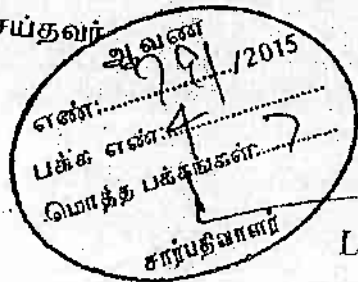 சய்தவர்
ஆவண
எண்:.............../2015
பக்க எண்: 4
மொத்த பக்கங்கள்: 7
சார்பதிவாளர்